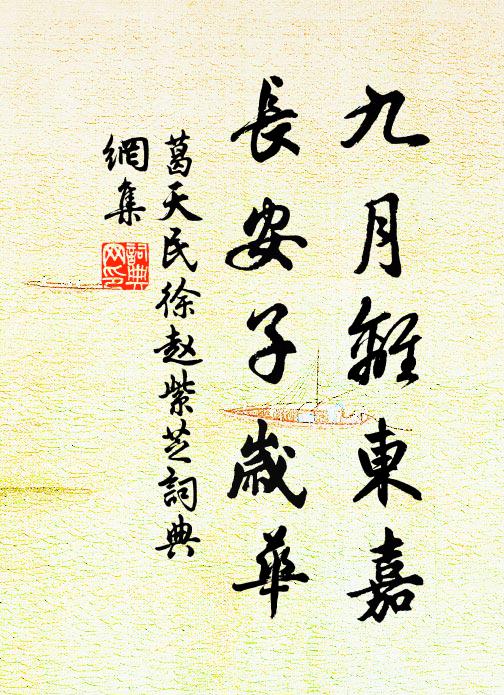 九月離東嘉
長安子歲華
葛天民徐赵紫芝詞典
網集
詞典网印